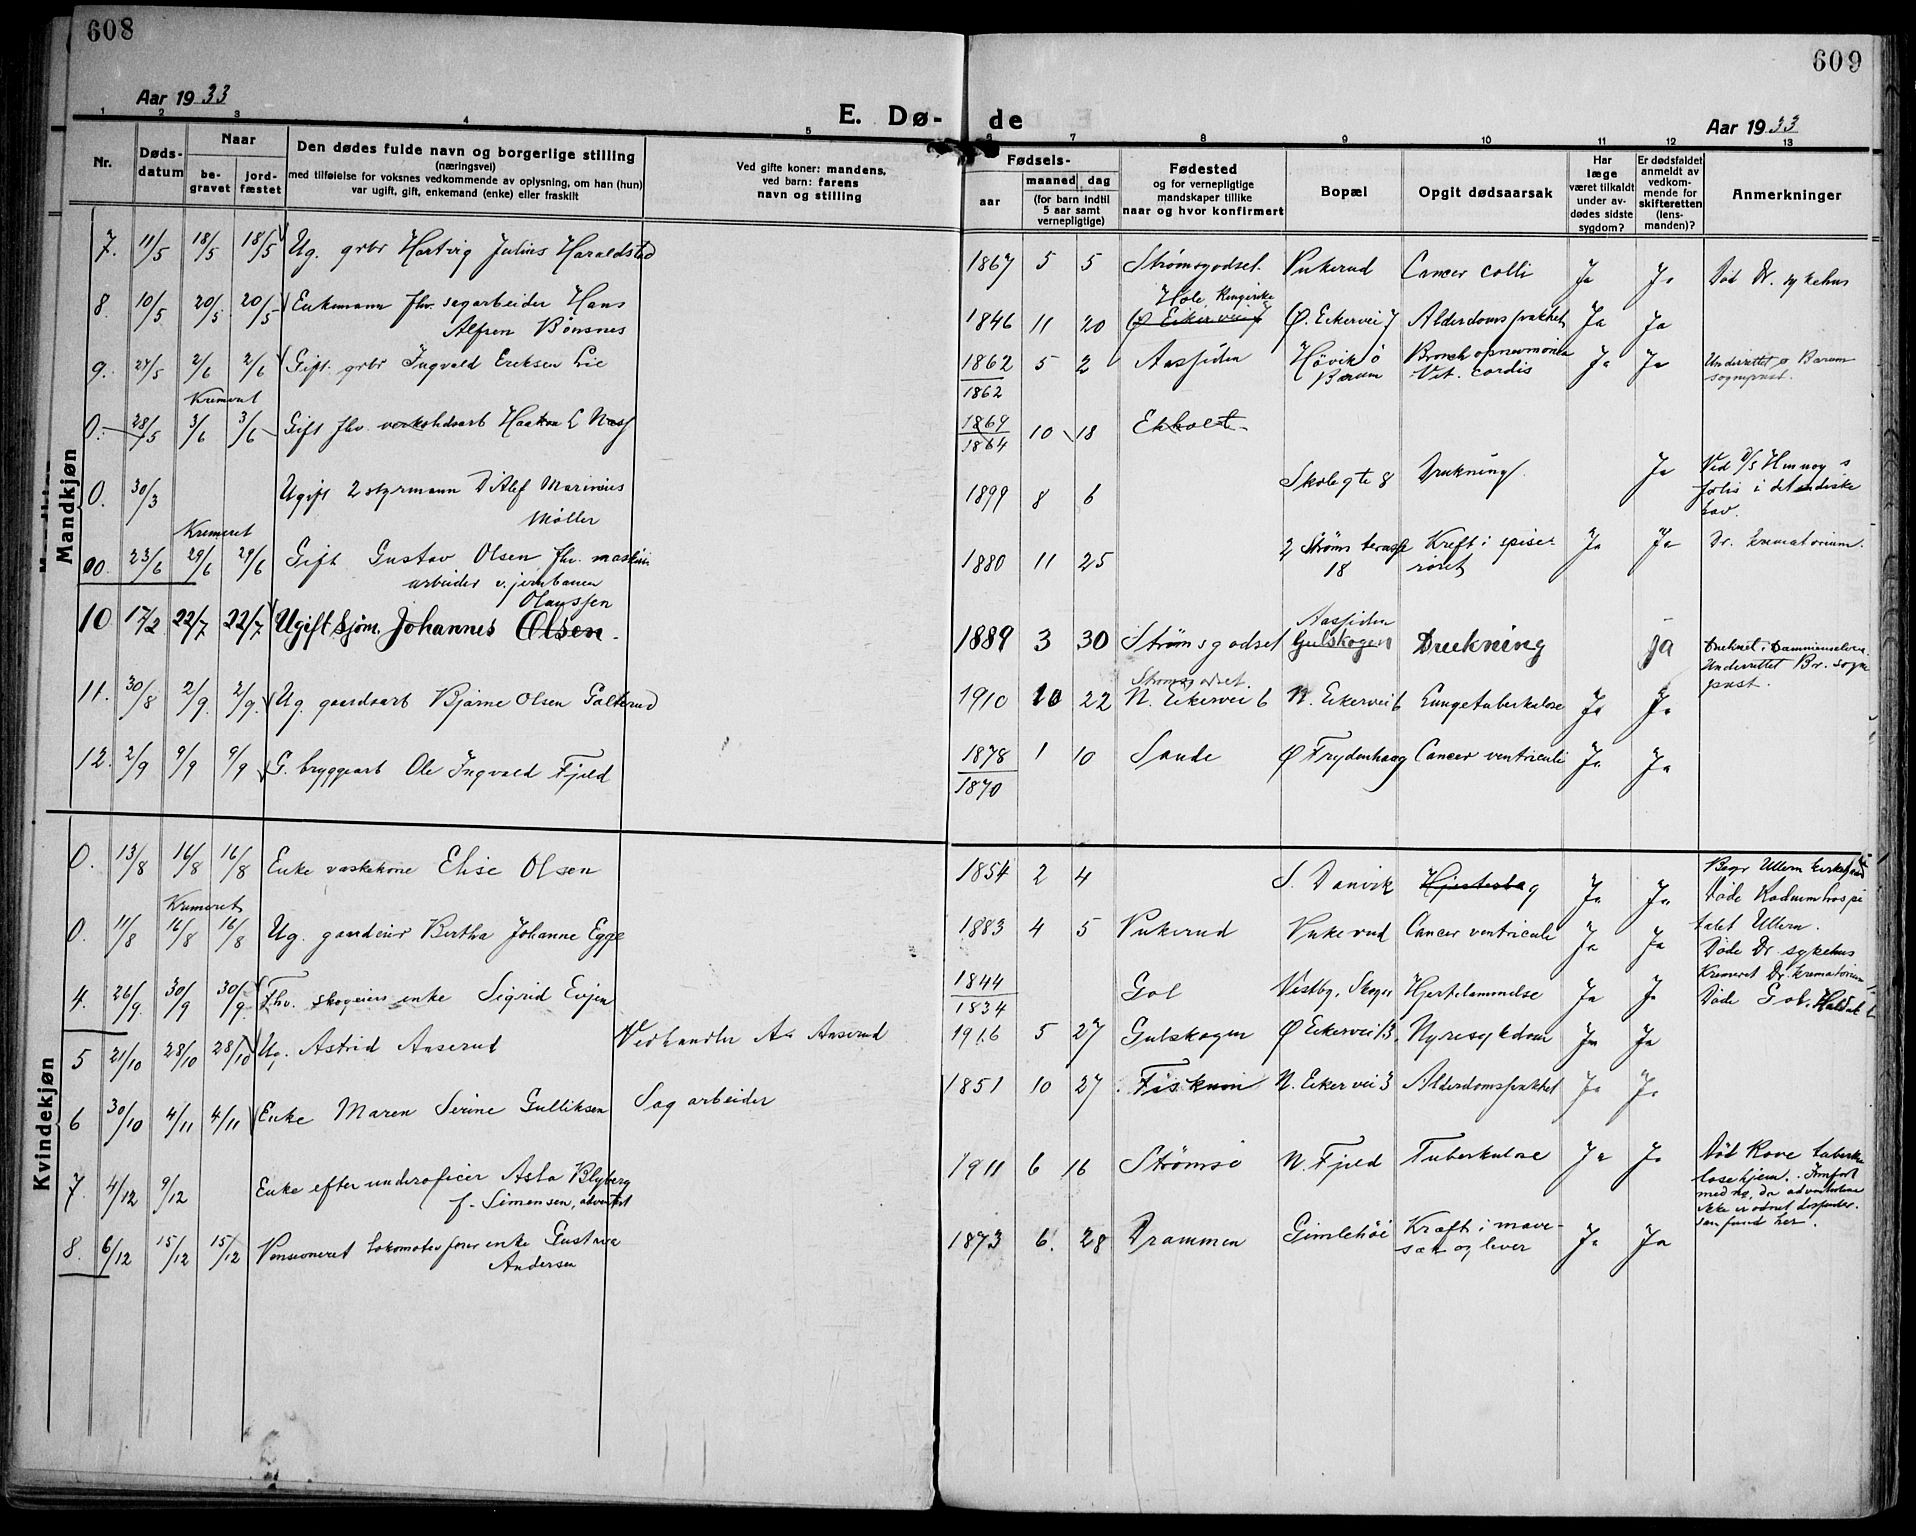 608
Aar 1933
E. Dø-
1 2 3 4 5
Nr. Døds-datum Naar be-gravet jord-fæstet Den dødes fulde navn og borgerlige stilling (næringsvei) med tilføielse for voksnes vedkommende av oplysning, om han (hun) var ugift, gift, enkemand (enke) eller fraskilt Ved gifte koner: mandens, ved barn: farens navn og stilling
Mandkjøn
7. 11/5 18/5 18/5 Ug. grbr Hartvig Julius Haraldstad
8. 10/5 20/5 20/5 Enkemann fhv. sagarbeider Hans
Alfren Bønsnes
9. 27/5 2/6 2/6 Gift. grbr Ingvald Eriksen Lie
Kremert
0. 28/5 3/6 3/6 Gift fhv. verkstedsarb Haakon L Næss
0. 30/3 Ugift 2 styrmann Ditlef Marinius
Møller
Kremeret
00 23/6 29/6 29/6 Gift Gustav Olsen fhv. maskin
arbeider v. jernbanen
Olaussen
10 17/2 22/7 22/7 Ugift sjøm. Johannes Olsen.
11. 30/8 2/9 2/9. Ug. gaardsarb Bjarne Olsen Galterud
12. 2/9 9/9 9/9 G. bryggearb Ole Ingvald Fjeld
Kvindekjøn
0. 13/8 16/8 16/8 Enke vaskekone Elise Olsen
Kremeret
0. 11/8 16/8 16/8 Ug. gaardeier Bertha Johanne Egge
4. 26/9. 30/9 30/9 Fhv. skogeiers enke Sigrid Evjen
5 21/10 28/10 28/10 Ug. Astrid Aaserud Vedhandler A. Aaserud
6 30/10 4/11 4/11 Enke Maren Serine Gulliksen Sagarbeider
7. 4/12 9/12 Enke efter underoficer Asta Blyberg
f. Simensen, adventist
8. 6/12 15/12 15/12 Pensioneret lokomotivfører enke Gustave
Andersen
609
de
Aar 1933
6 7 8 9 10 11 12 13
Fødsels- aar maaned dag (for barn indtil 5 aar samt vernepligtige) Fødested og for vernepligtige mandskaper tillike naar og hvor konfirmert Bopæl Opgit dødsaarsak Har læge været tilkaldt under av-dødes sidste sygdom? Er dødsfaldet anmeldt av vedkom-mende for skifteretten (lens-manden)? Anmerkninger
1867 5 5 Strømsgodset. Pukerud Cancer colli Ja Ja Død Dr. sykehus
Hole, Ringerike
1846 11 20 Ø Eikervei 7 Ø. Eikervei 7 Alderdomssvakhet Ja Ja
1862 5 2 Aassiden Høvik ø Bronchopneumonia Ja Ja Underrettet Bærum
1862 Bærum Vit. cordis sogneprest.
1869 10 18 Ekholt
1864
1899 8 6 Skolegte 8 Drukning Ja Ved D/S
i det indiske
hav.
1880 11 25 2 Strøms terasse Kreft i spise Ja Ja Dr. krematorium.
18 røret
Aassiden
1889 3 30 Strømsgodset Gulskogen Drukning Ja Druknet i Drammenselven.
Underrettet Br. sogne
prest.
Strømsgodset
1910 10 22 N. Eikervei 6 N. Eikervei 6 Lungetuberkulose Ja Ja
1878 1 10 Sande Ø Frydenhaug Cancer ventriculi Ja Ja
1870
1854 2 4 S. Danvik Hjerteslag Ja Ja Begr Ullern kirkegaard
Døde Radiumhospi
1883 4 5 Pukerud Pukerud Cancer ventriculi Ja Ja talet Ullern.
Døde Dr. sykehus
Kremeret Dr. krematorium
1844 Gol Vestby, Skoger Hjertelammelse Ja Ja Døde Gol,
1834
1916 5 27 Gulskogen Ø Eikervei 13. Nyresykdom Ja Ja
1851 10 27 Fiskum N. Eikervei 3 Alderdomssvakhet Ja Ja.
1911 6 16 Strømsø N. Fjeld Tuberkulose Ja Ja Død Kove tuberku
losehjem.
med ng, da adventistene
ikke er
1873 6. 28 Drammen Gimlehøi Kræft i mave- Ja Ja
sæk og lever